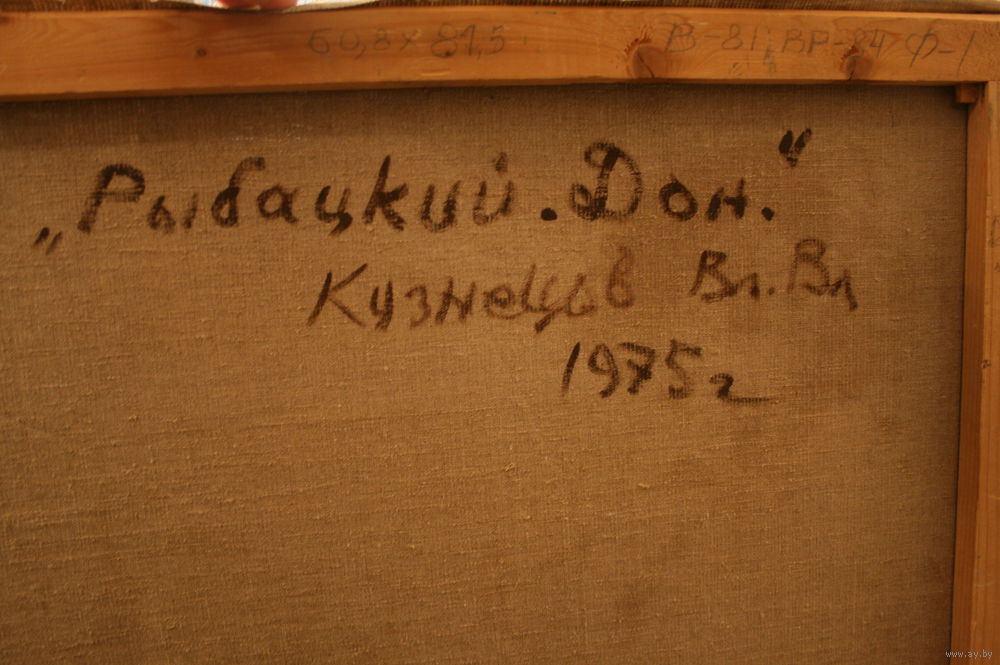 60,8x81,5 В-81, ВР-84 Ф-1
„Рыбацкий. Дон.“
Кузнецов Вл. Вл
1975г
www.ay.by